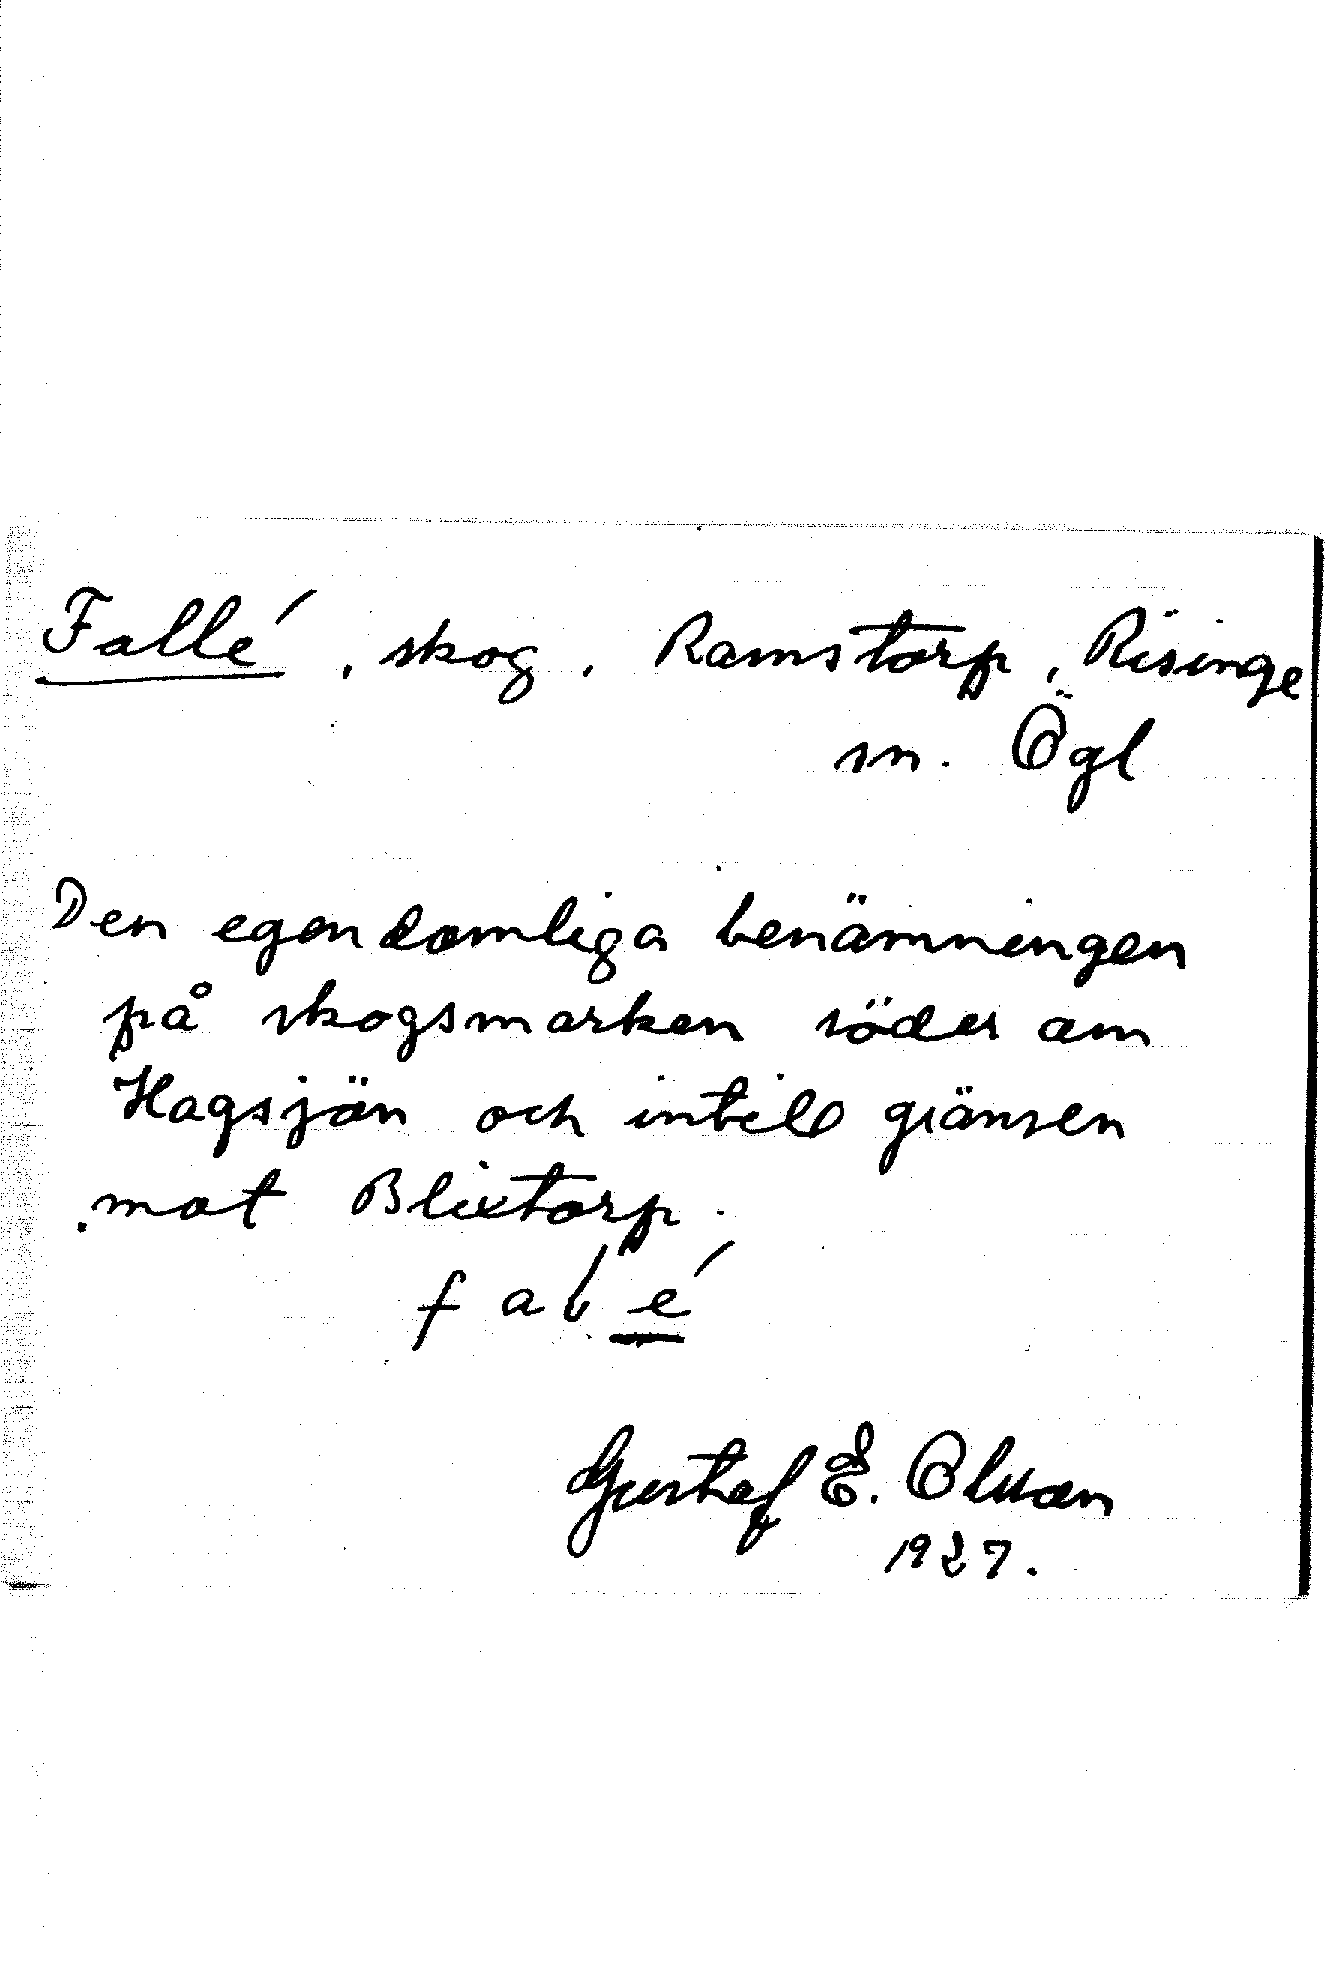 Fallé, skog, Ramstorp, Risinge
sn. Ögl
Den egendomliga benämningen
på skogsmarken söder om
Hagsjön och intill gränsen
mot Blixtorp.
Gustaf E. Olsson
1927.